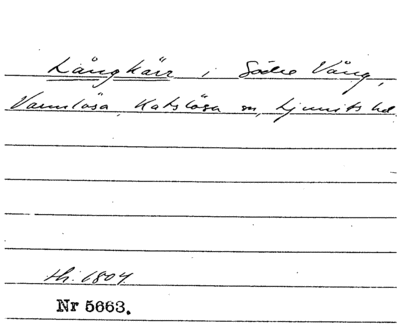 Långkärr i Södre Vång,
Varmlösa, Katslösa sn, Ljunits hd.
th. 1804
Nr 5663.